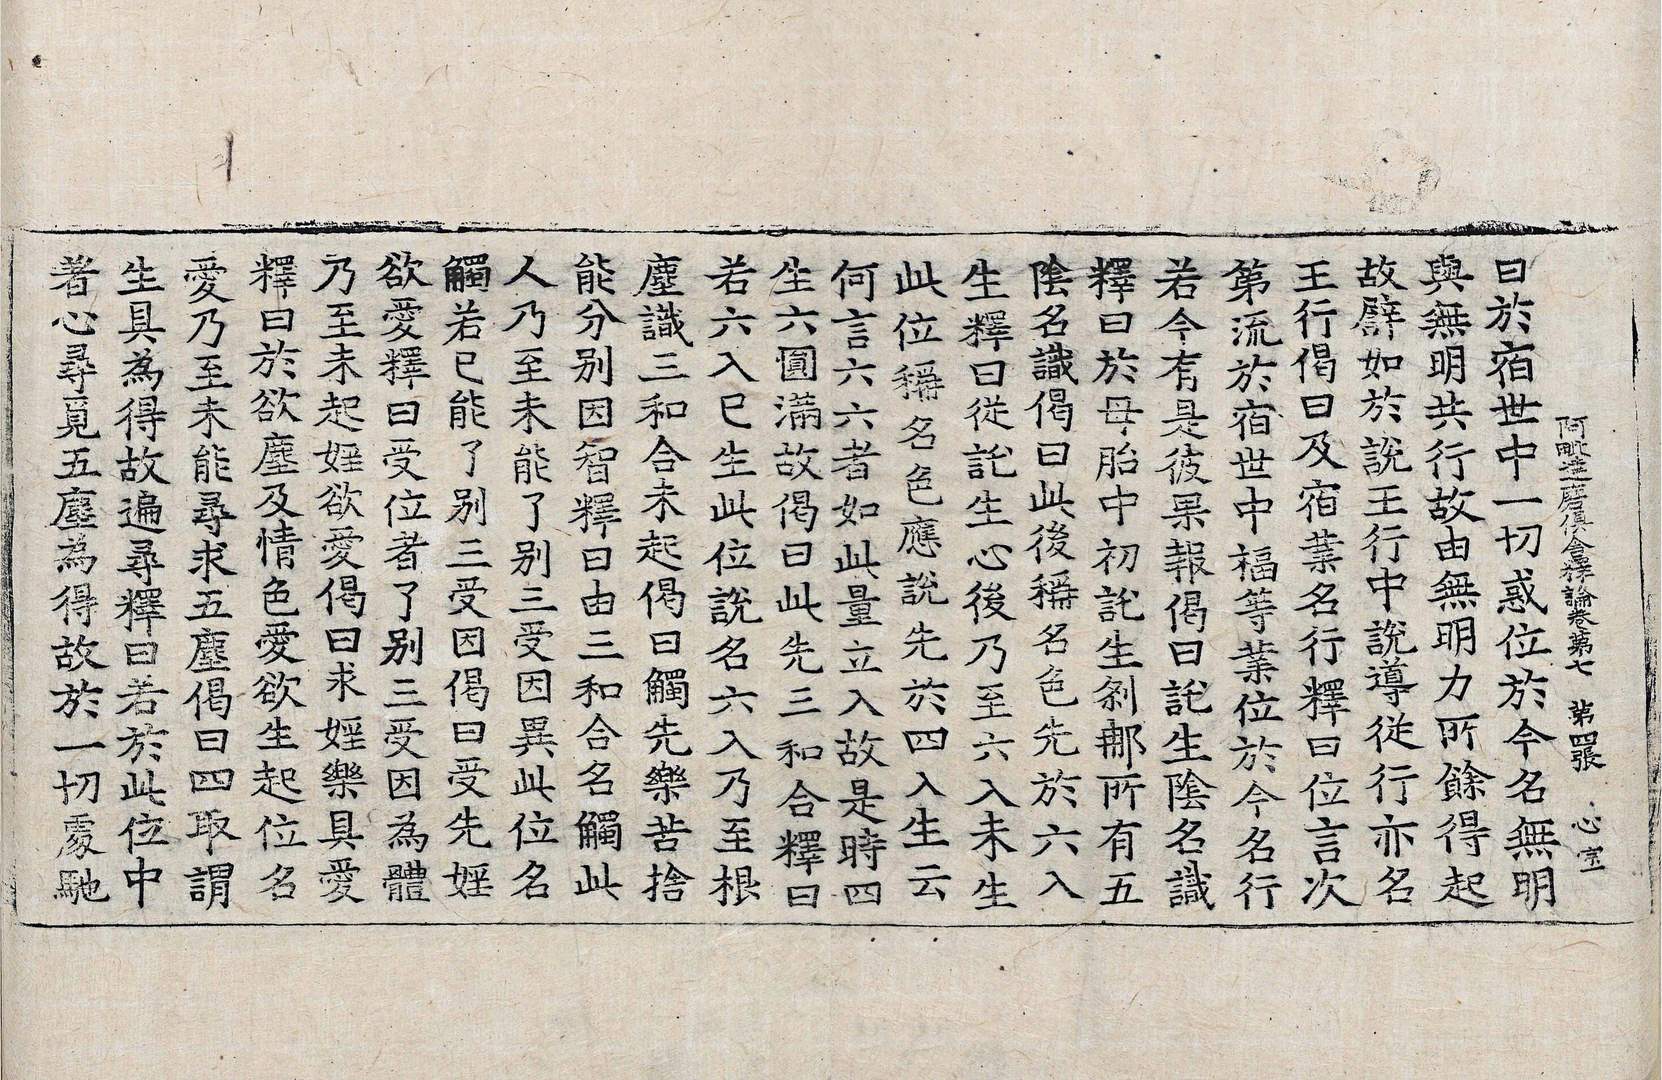 阿毗達磨俱舍釋論卷第七　第四張　心
曰於宿世中一切惑位於今名無明
與無明共行故由無明力所餘得起
故譬如於說王行中說導從行亦名
王行偈曰及宿業名行釋曰位言次
第流於宿世中福等業位於今名行
若今有是彼果報偈曰託生陰名識
釋曰於母胎中初託生剎那所有五
陰名識偈曰此後稱名色先於六入
生釋曰從託生心後乃至六入未生
此位稱名色應說先於四入生云
何言六六者如此量立入故是時四
生六圓滿故偈曰此先三和合釋曰
若六入已生此位說名六入乃至根
塵識三和合未起偈曰觸先樂苦捨
能分別因智釋曰由三和合名觸此
人乃至未能了別三受因異此位名
觸若已能了別三受因偈曰受先婬
欲愛釋曰受位者了別三受因為體
乃至未起婬欲愛偈曰求婬樂具愛
釋曰於欲塵及情色愛欲生起位名
愛乃至未能尋求五塵偈曰四取謂
生具為得故遍尋釋曰若於此位中
著心尋覓五塵為得故於一切處馳